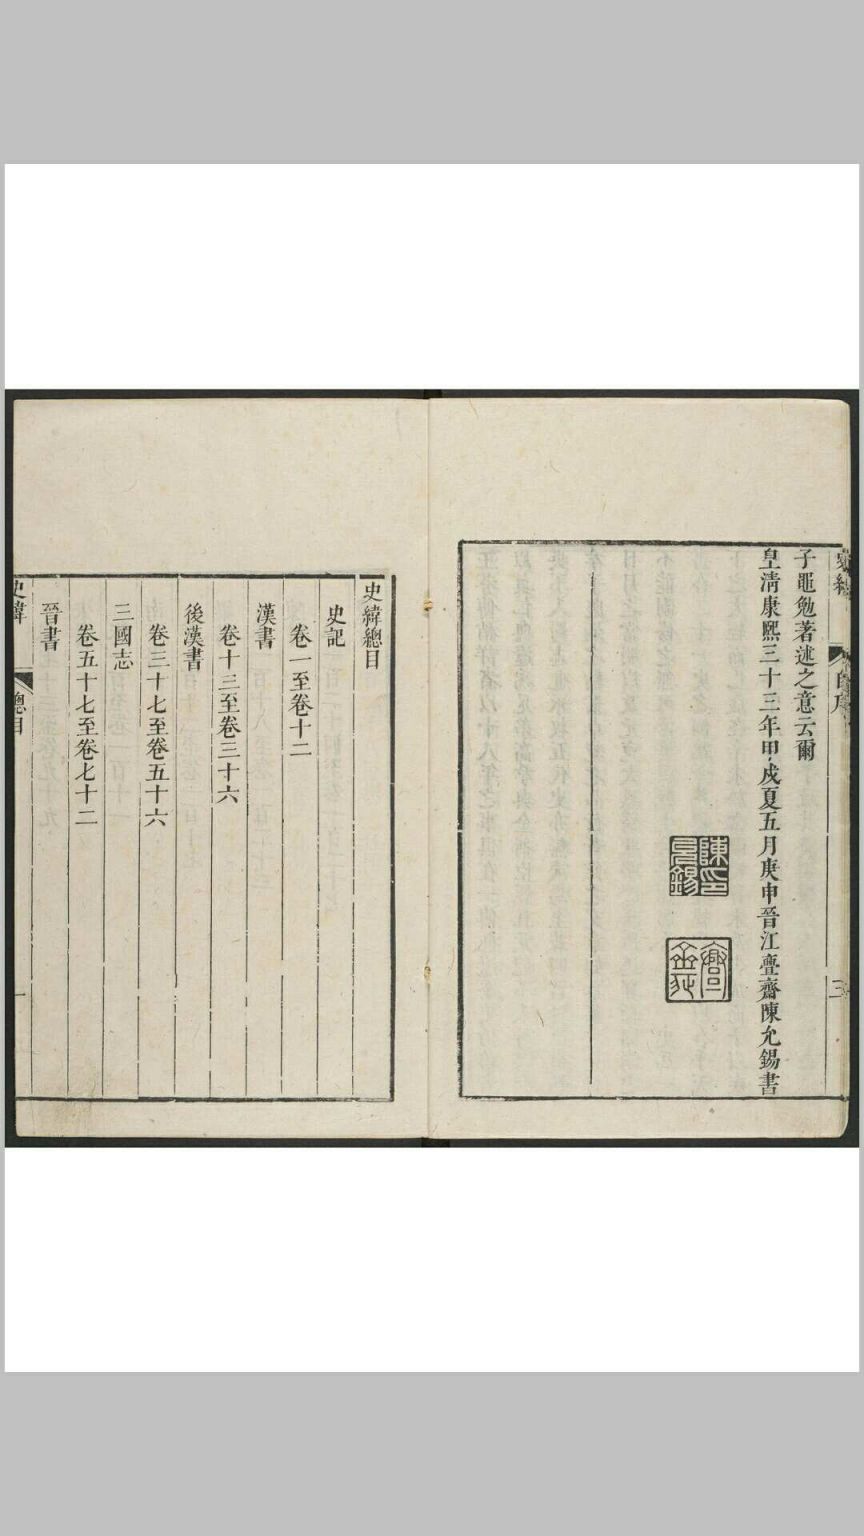 史緯
自序
三
子黽勉著述之意云爾
皇淸康熙三十三年甲戌夏五月庚申晉江亹齋陳允錫書
史緯總目
史記
卷一至卷十二
漢書
卷十三至卷三十六
後漢書
卷三十七至卷五十六
三國志
卷五十七至卷七十二
晉書
史緯
總目
一